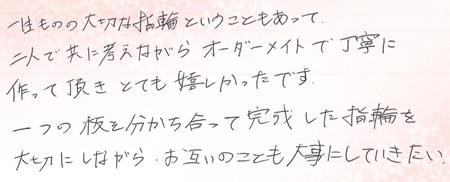 一生ものの大切な指輪ということもあって、
二人で共に考えながら オーダーメイドで丁寧に
作って頂き とても嬉しかったです.
一つの板を分かち合って完成した指輪を
大切にしながら、お互いのことも大事にしていきたい.